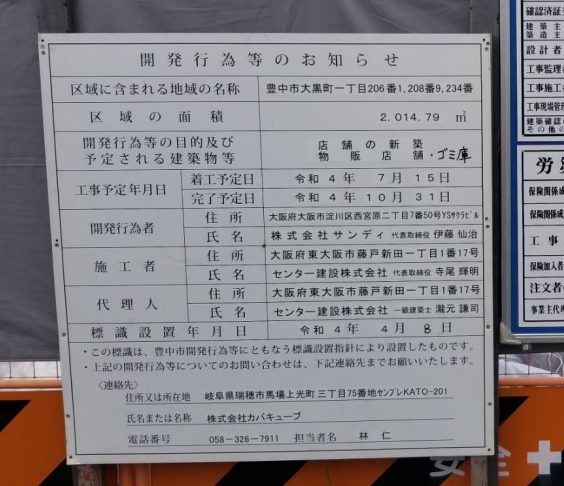 開発行為等のお知らせ
区域に含まれる地域の名称 豊中市大黒町一丁目206番1,208番9,234番
区域の面積 2,014.79 ㎡
開発行為等の目的及び予定される建築物等 店舗の新築 物販店舗・ゴミ庫
工事予定年月日 着工予定日 令和 4年 7月 15日
完了予定日 令和 4年 10月 31日
開発行為者 住所 大阪府大阪市淀川区西宮原二丁目7番50号YSサクラビル
氏名 株式会社サンディ 代表取締役 伊藤 仙治
施工者 住所 大阪府東大阪市藤戸新田一丁目1番17号
氏名 センター建設株式会社 代表取締役 寺尾 輝明
代理人 住所 大阪府東大阪市藤戸新田一丁目1番17号
氏名 センター建設株式会社 一級建築士 瀧元 謙司
標識設置年月日 令和 4年 4月 8日
・この標識は、豊中市開発行為等にともなう標識設置指針により設置したものです。
・上記の開発行為等についてのお問い合わせは、下記連絡先までお願いいたします。
〈連絡先〉
住所又は所在地 岐阜県瑞穂市馬場上光町三丁目75番地センプレKATO-201
氏名または名称 株式会社カバキューブ
電話番号 058-326-7911 担当者名 林 仁
確認済証
建築主
築造主
設計者
工事監理者
工事施工者
工事現場管理
建築確認
その他の
労
保険関係成
保険関係成
工事
保険加入者
注文者の
事業主代理
安全